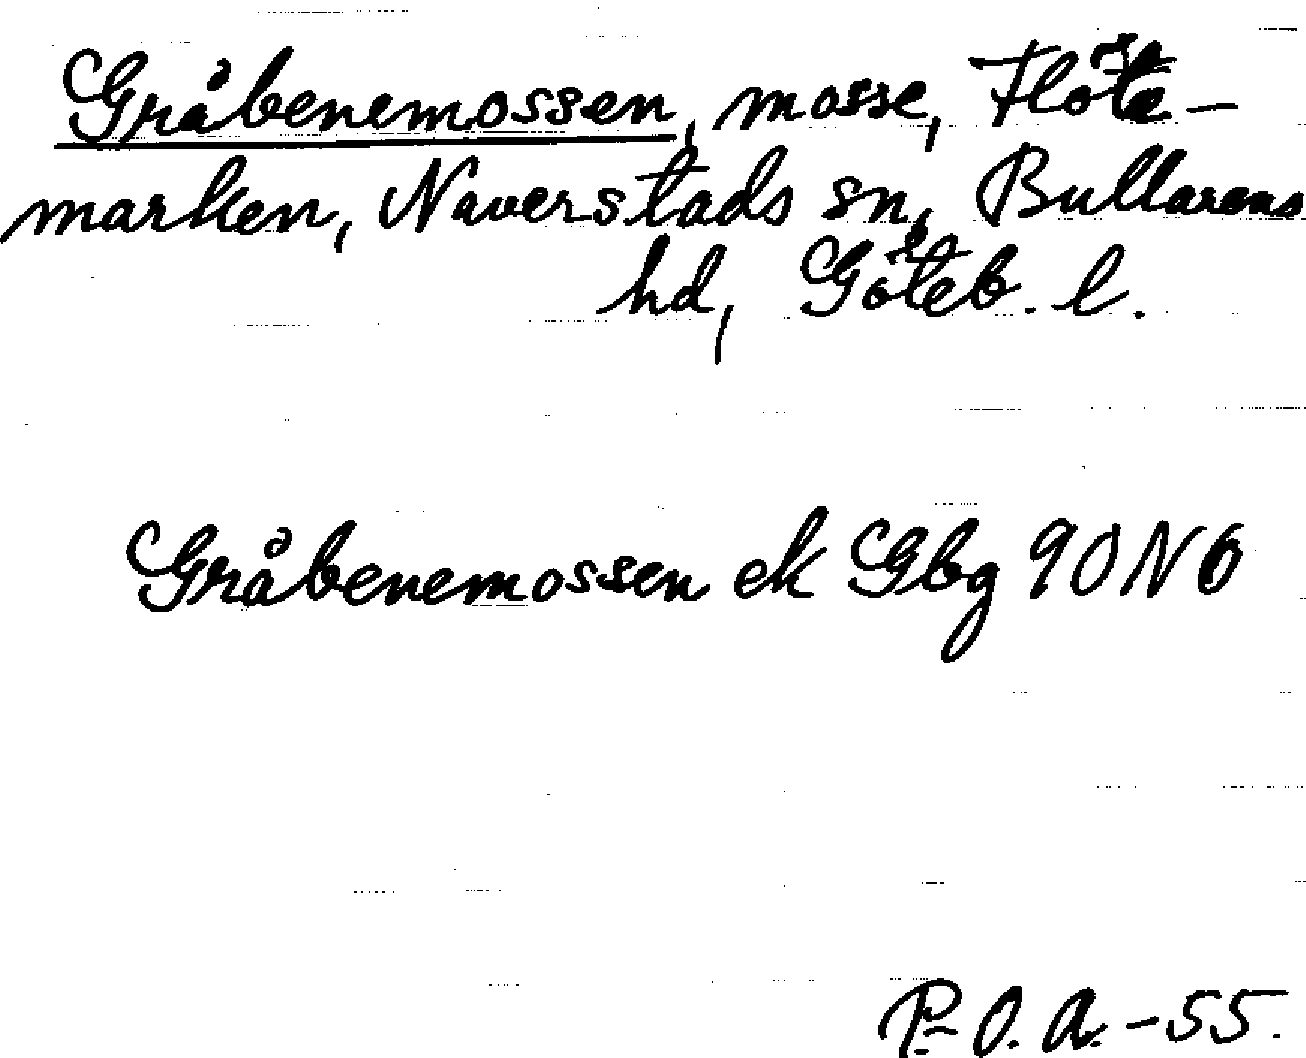 Gråbenemossen, mosse, Flöte-
marken, Naverstads sn, Bullarens
hd, Göteb. l.
Gråbenemossen ek Gbg 90 N6
P.O.A. -55.